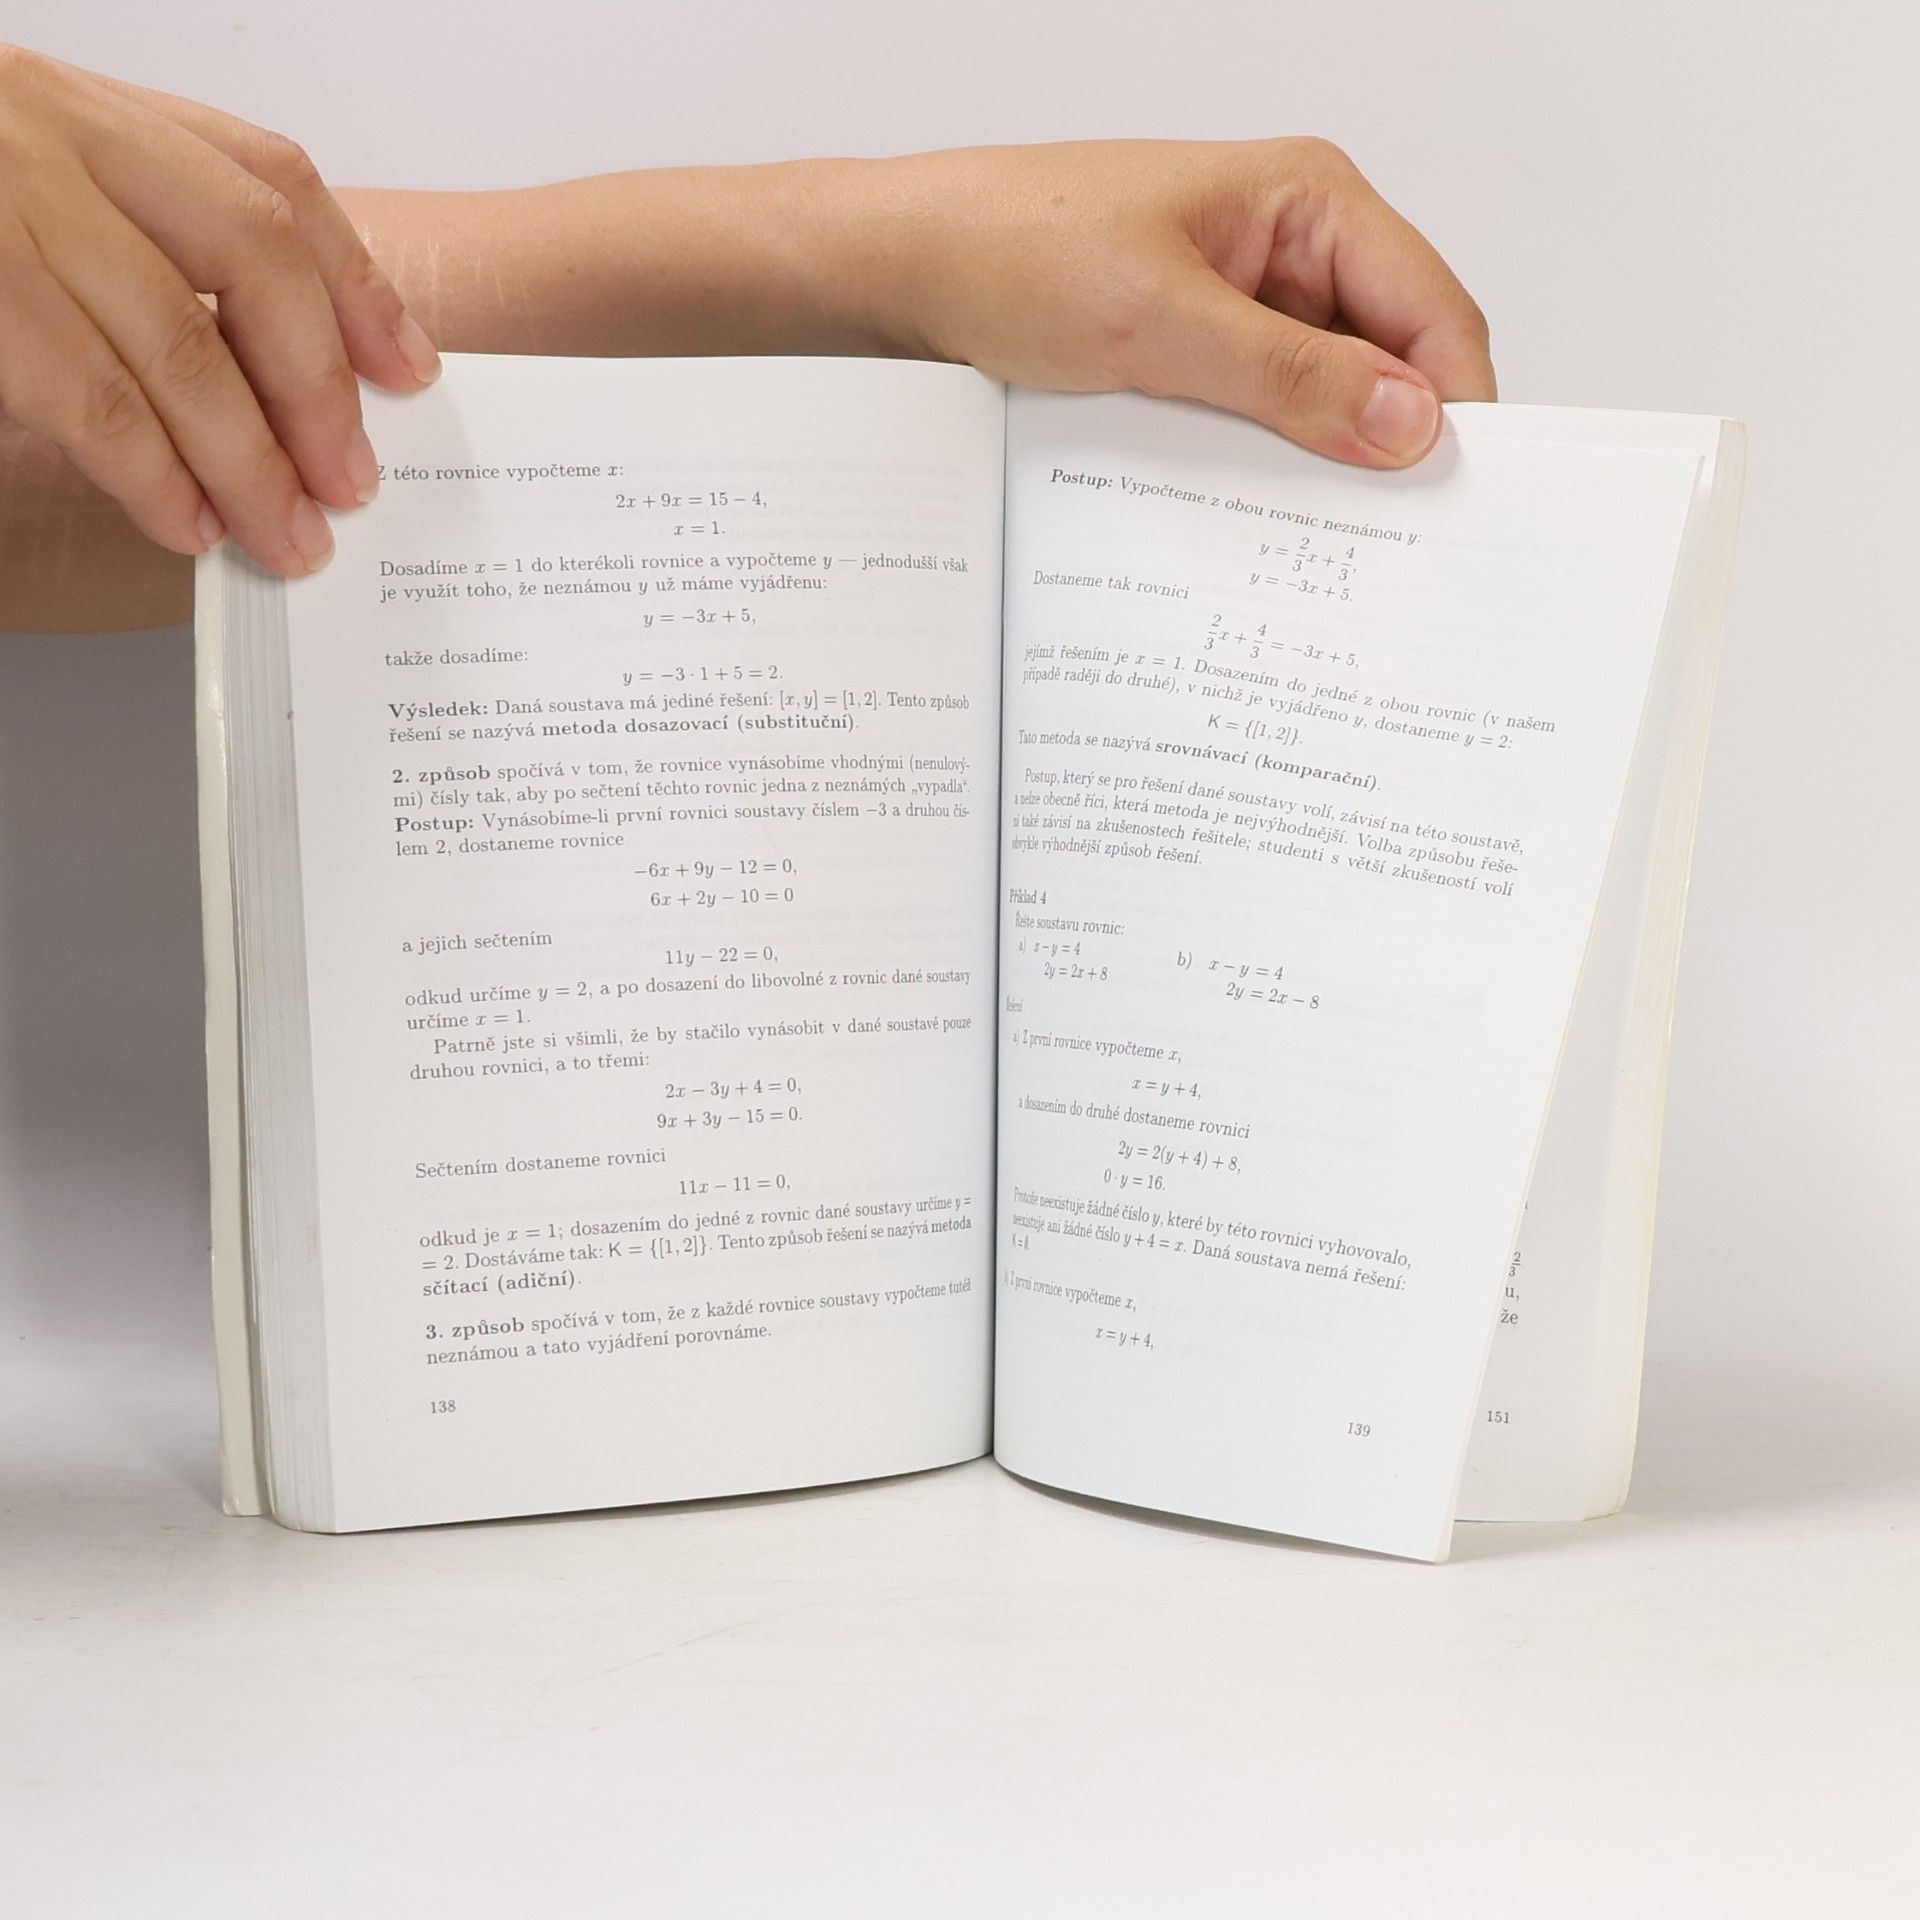 Z této rovnice vypočteme x:
2x + 9x = 15 − 4,
x = 1.
Dosadíme x = 1 do kterékoli rovnice a vypočteme y — jednodušší však
je využít toho, že neznámou y už máme vyjádřenu:
y = −3x + 5,
takže dosadíme:
y = −3 · 1 + 5 = 2.
Výsledek: Daná soustava má jediné řešení: [x, y] = [1, 2]. Tento způsob
řešení se nazývá metoda dosazovací (substituční).
2. způsob spočívá v tom, že rovnice vynásobíme vhodnými (nenulový-
mi) čísly tak, aby po sečtení těchto rovnic jedna z neznámých „vypadla“.
Postup: Vynásobíme-li první rovnici soustavy číslem −3 a druhou čís-
lem 2, dostaneme rovnice
−6x + 9y − 12 = 0,
6x + 2y − 10 = 0
a jejich sečtením
11y − 22 = 0,
odkud určíme y = 2, a po dosazení do libovolné z rovnic dané soustavy
určíme x = 1.
Patrně jste si všimli, že by stačilo vynásobit v dané soustavě pouze
druhou rovnici, a to třemi:
2x − 3y + 4 = 0,
9x + 3y − 15 = 0.
Sečtením dostaneme rovnici
11x − 11 = 0,
odkud je x = 1; dosazením do jedné z rovnic dané soustavy určíme y =
= 2. Dostáváme tak: K = {[1, 2]}. Tento způsob řešení se nazývá metoda
sčítací (adiční).
3. způsob spočívá v tom, že z každé rovnice soustavy vypočteme tutéž
neznámou a tato vyjádření porovnáme.
138
Postup: Vypočteme z obou rovnic neznámou y:
y = 2/3 x + 4/3,
y = −3x + 5.
Dostaneme tak rovnici
2/3 x + 4/3 = −3x + 5,
jejímž řešením je x = 1. Dosazením do jedné z obou rovnic (v našem
případě raději do druhé), v nichž je vyjádřeno y, dostaneme y = 2:
K = {[1, 2]}.
Tato metoda se nazývá srovnávací (komparační).
Postup, který se pro řešení dané soustavy volí, závisí na této soustavě,
a nelze obecně říci, která metoda je nejvýhodnější. Volba způsobu řeše-
ní také závisí na zkušenostech řešitele; studenti s větší zkušeností volí
obvykle výhodnější způsob řešení.
Příklad 4
Řešte soustavu rovnic:
a) x − y = 4 b) x − y = 4
2y = 2x + 8 2y = 2x − 8
Řešení
a) Z první rovnice vypočteme x,
x = y + 4,
a dosazením do druhé dostaneme rovnici
2y = 2(y + 4) + 8,
0 · y = 16.
Protože neexistuje žádné číslo y, které by této rovnici vyhovovalo,
neexistuje ani žádné číslo y + 4 = x. Daná soustava nemá řešení:
K = ∅.
b) Z první rovnice vypočteme x,
x = y + 4,
139
2/3
u,
že
151